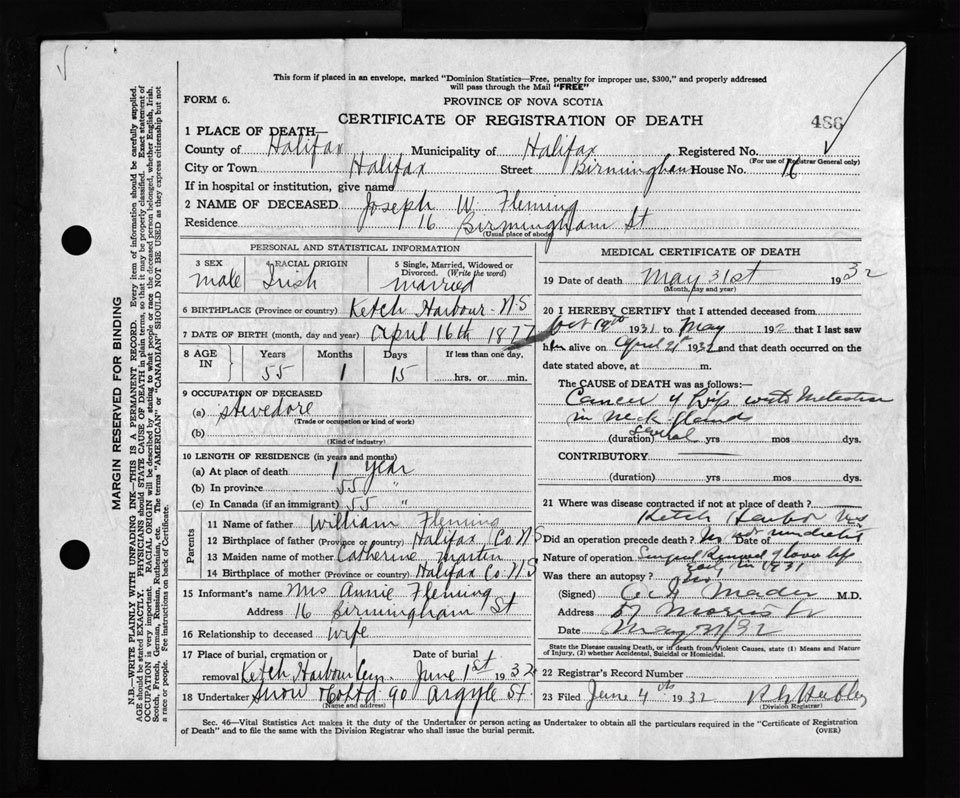 This form if placed in an envelope, marked "Dominion Statistics—Free, penalty for improper use, $300," and properly addressed
will pass through the Mail "FREE"
FORM 6.
PROVINCE OF NOVA SCOTIA
CERTIFICATE OF REGISTRATION OF DEATH
486
1 PLACE OF DEATH—
County of Halifax Municipality of Halifax Registered No.
(For use of Registrar General only)
City or Town Halifax Street Birmingham House No. 16
If in hospital or institution, give name
2 NAME OF DECEASED Joseph W. Fleming
Residence 16 Birmingham St
(Usual place of abode)
PERSONAL AND STATISTICAL INFORMATION
3 SEX male
4 RACIAL ORIGIN Irish
5 Single, Married, Widowed or Divorced. (Write the word) married
6 BIRTHPLACE (Province or country) Ketch Harbour N.S
7 DATE OF BIRTH (month, day and year) April 16th 1877
8 AGE IN Years 55 Months 1 Days 15 If less than one day, hrs. or min.
9 OCCUPATION OF DECEASED
(a) stevedore
(Trade or occupation or kind of work)
(b)
(Kind of industry)
10 LENGTH OF RESIDENCE (in years and months)
(a) At place of death 1 year
(b) In province 55 "
(c) In Canada (if an immigrant) 55 "
Parents
11 Name of father William Fleming
12 Birthplace of father (Province or country) Halifax Co. N.S
13 Maiden name of mother Catherine Martin
14 Birthplace of mother (Province or country) Halifax Co. N.S
15 Informant's name Mrs Annie Fleming
Address 16 Birmingham St
16 Relationship to deceased Wife
17 Place of burial, cremation or removal Ketch Harbour Cem. Date of burial June 1st 1932
18 Undertaker Snow & Co Ltd 90 Argyle St.
(Name and address)
MEDICAL CERTIFICATE OF DEATH
19 Date of death May 31st 1932
(Month, day and year)
20 I HEREBY CERTIFY that I attended deceased from
Oct 19th 1931 to May 192 that I last saw
him alive on April 21st 1932 and that death occurred on the
date stated above, at m.
The CAUSE OF DEATH was as follows:—
Cancer of lip with Metastases
in neck glands
(duration) several yrs mos dys.
CONTRIBUTORY
(duration) yrs mos dys.
21 Where was disease contracted if not at place of death?
Ketch Harbor N.S
Did an operation precede death? Date of
Nature of operation Removal of lower lip
early in 1931
Was there an autopsy? No.
(Signed) Mader M.D.
Address 57 Morris St
Date May 31/32
State the Disease causing Death, or in death from Violent Causes, state (1) Means and Nature
of Injury, (2) whether Accidental, Suicidal or Homicidal.
22 Registrar's Record Number
23 Filed June 4th 1932
(Division Registrar)
Sec. 46—Vital Statistics Act makes it the duty of the Undertaker or person acting as Undertaker to obtain all the particulars required in the "Certificate of Registration
of Death" and to file the same with the Division Registrar who shall issue the burial permit.
(OVER)
MARGIN RESERVED FOR BINDING
N.B.—WRITE PLAINLY WITH UNFADING INK—THIS IS A PERMANENT RECORD. Every item of information should be carefully supplied.
AGE should be stated EXACTLY. PHYSICIANS should STATE CAUSE OF DEATH in plain terms, so that it may be properly classified. Exact statement of
OCCUPATION is very important. RACIAL ORIGIN will be described by stating to what people or race the deceased person belonged, whether English, Irish,
Scotch, French, German, Russian, Ruthenian, etc. The terms "AMERICAN" or "CANADIAN" SHOULD NOT BE USED as they express citizenship but not
a race or people. See instructions on back of Certificate.